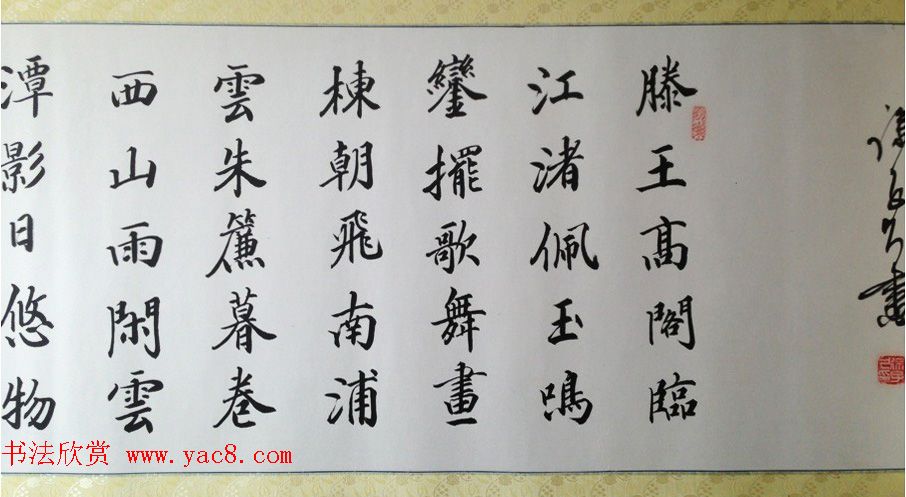 滕王高閣臨
江渚佩玉鳴
鑾擺歌舞畫
棟朝飛南浦
雲朱簾暮卷
西山雨閑雲
潭影日悠物
书法欣赏 www.yac8.com